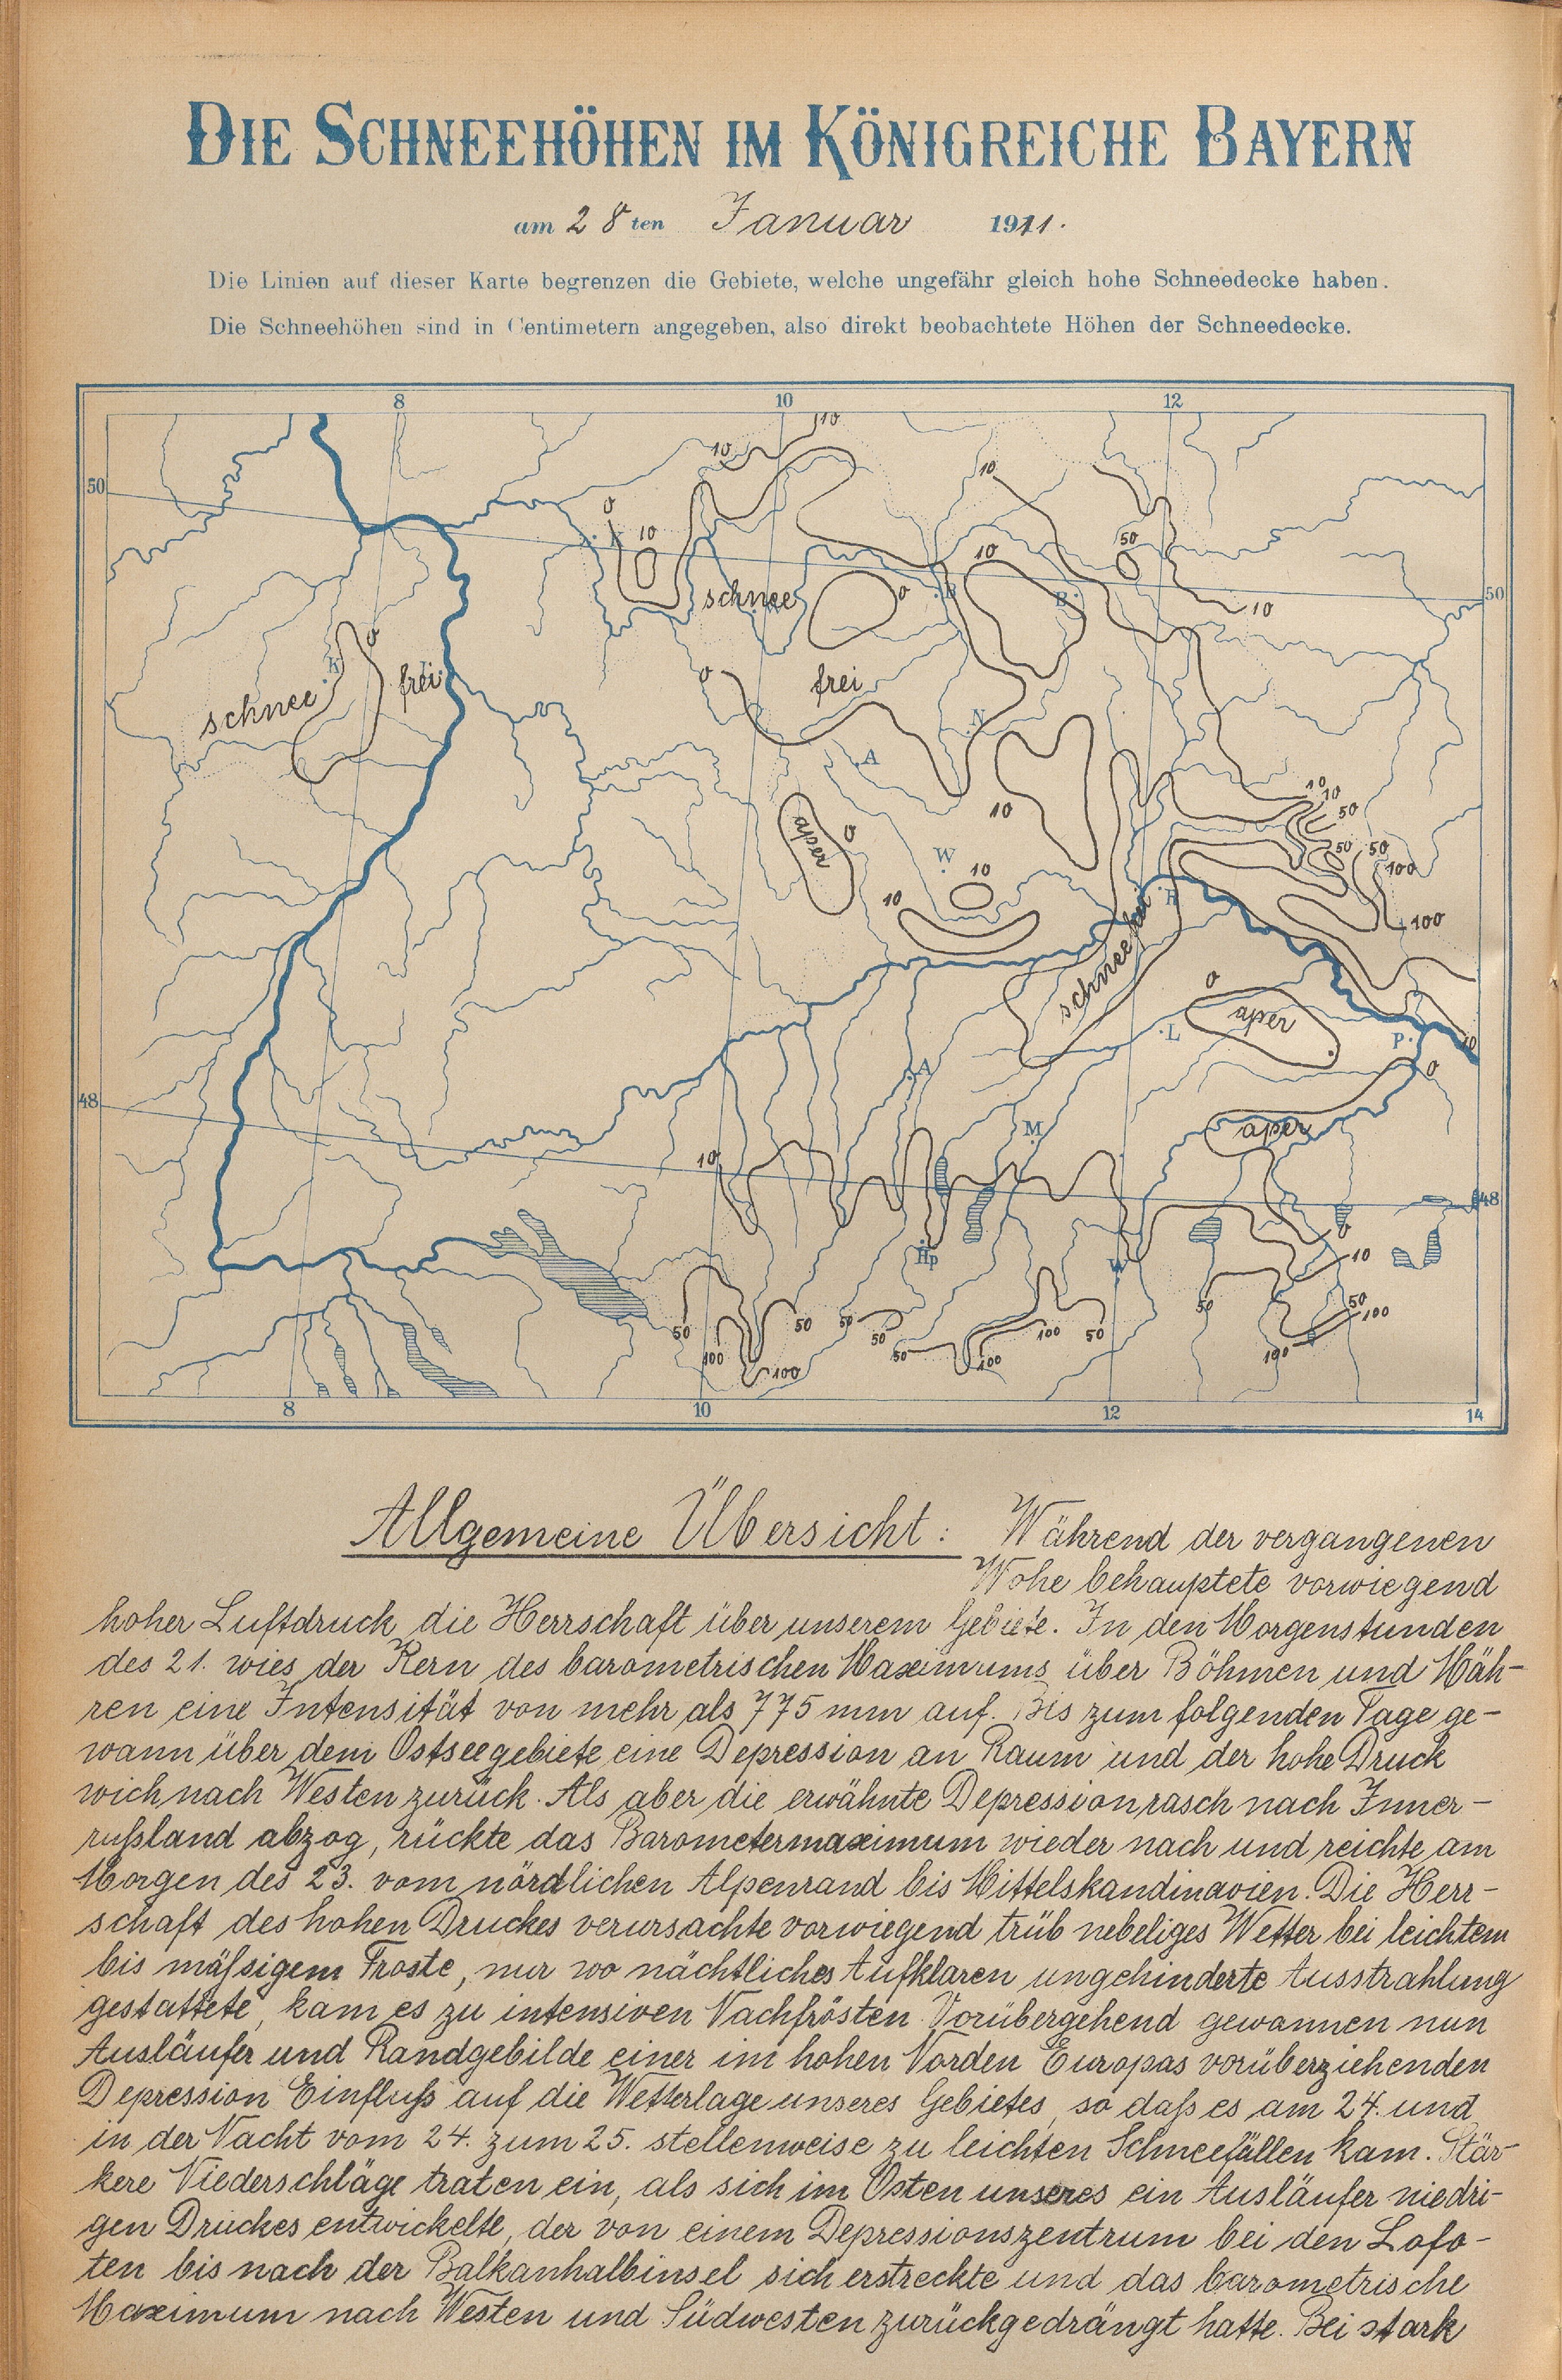 DIE SCHNEEHÖHEN IM KÖNIGREICHE BAYERN
am 28ten Januar 1911.
Die Linien auf dieser Karte begrenzen die Gebiete, welche ungefähr gleich hohe Schneedecke haben.
Die Schneehöhen sind in Centimetern angegeben, also direkt beobachtete Höhen der Schneedecke.
8 10 12
10
10
10
50
0
10
50
10
0
schnee
10
B
B
50
10
0
K
schnee
frei
0
frei
N
A
aper
0
10
W
10
10
10
10
50
50
50
100
100
R
schneefrei
0
aper
L
P
10
0
48
A
M
aper
10
48
Hp
W
0
10
50
50
100
100
50
100
50
100
50
50
50
100
100
50
8 10 12 14
Allgemeine Übersicht: Während der vergangenen
Wohe behauptete vorwiegend
hoher Luftdruck die Herrschaft über unserem Gebiete. In den Morgenstunden
des 21. wies der Kern des barometrischen Maximums über Böhmen und Mäh-
ren eine Intensität von mehr als 775 mm auf. Bis zum folgenden Tage ge-
wann über dem Ostseegebiete eine Depression an Raum und der hohe Druck
wich nach Westen zurück. Als aber die erwähnte Depression rasch nach Inner-
rußland abzog, rückte das Barometermaximum wieder nach und reichte am
Morgen des 23. vom nördlichen Alpenrand bis Mittelskandinavien. Die Herr-
schaft des hohen Druckes verursachte vorwiegend trüb nebeliges Wetter bei leichtem
bis mäßigem Froste, nur wo nächtliches Aufklaren ungehinderte Ausstrahlung
gestattete, kam es zu intensiven Nachfrösten. Vorübergehend gewannen nun
Ausläufer und Randgebilde einer im hohen Norden Europas vorüberziehenden
Depression Einfluß auf die Wetterlage unseres Gebietes, so daß es am 24. und
in der Nacht vom 24. zum 25. stellenweise zu leichten Schneefällen kam. Stär-
kere Niederschläge traten ein, als sich im Osten unseres ein Ausläufer niedri-
gen Druckes entwickelte, der von einem Depressionszentrum bei den Lofo-
ten bis nach der Balkanhalbinsel sich erstreckte und das barometrische
Maximum nach Westen und Südwesten zurückgedrängt hatte. Bei stark